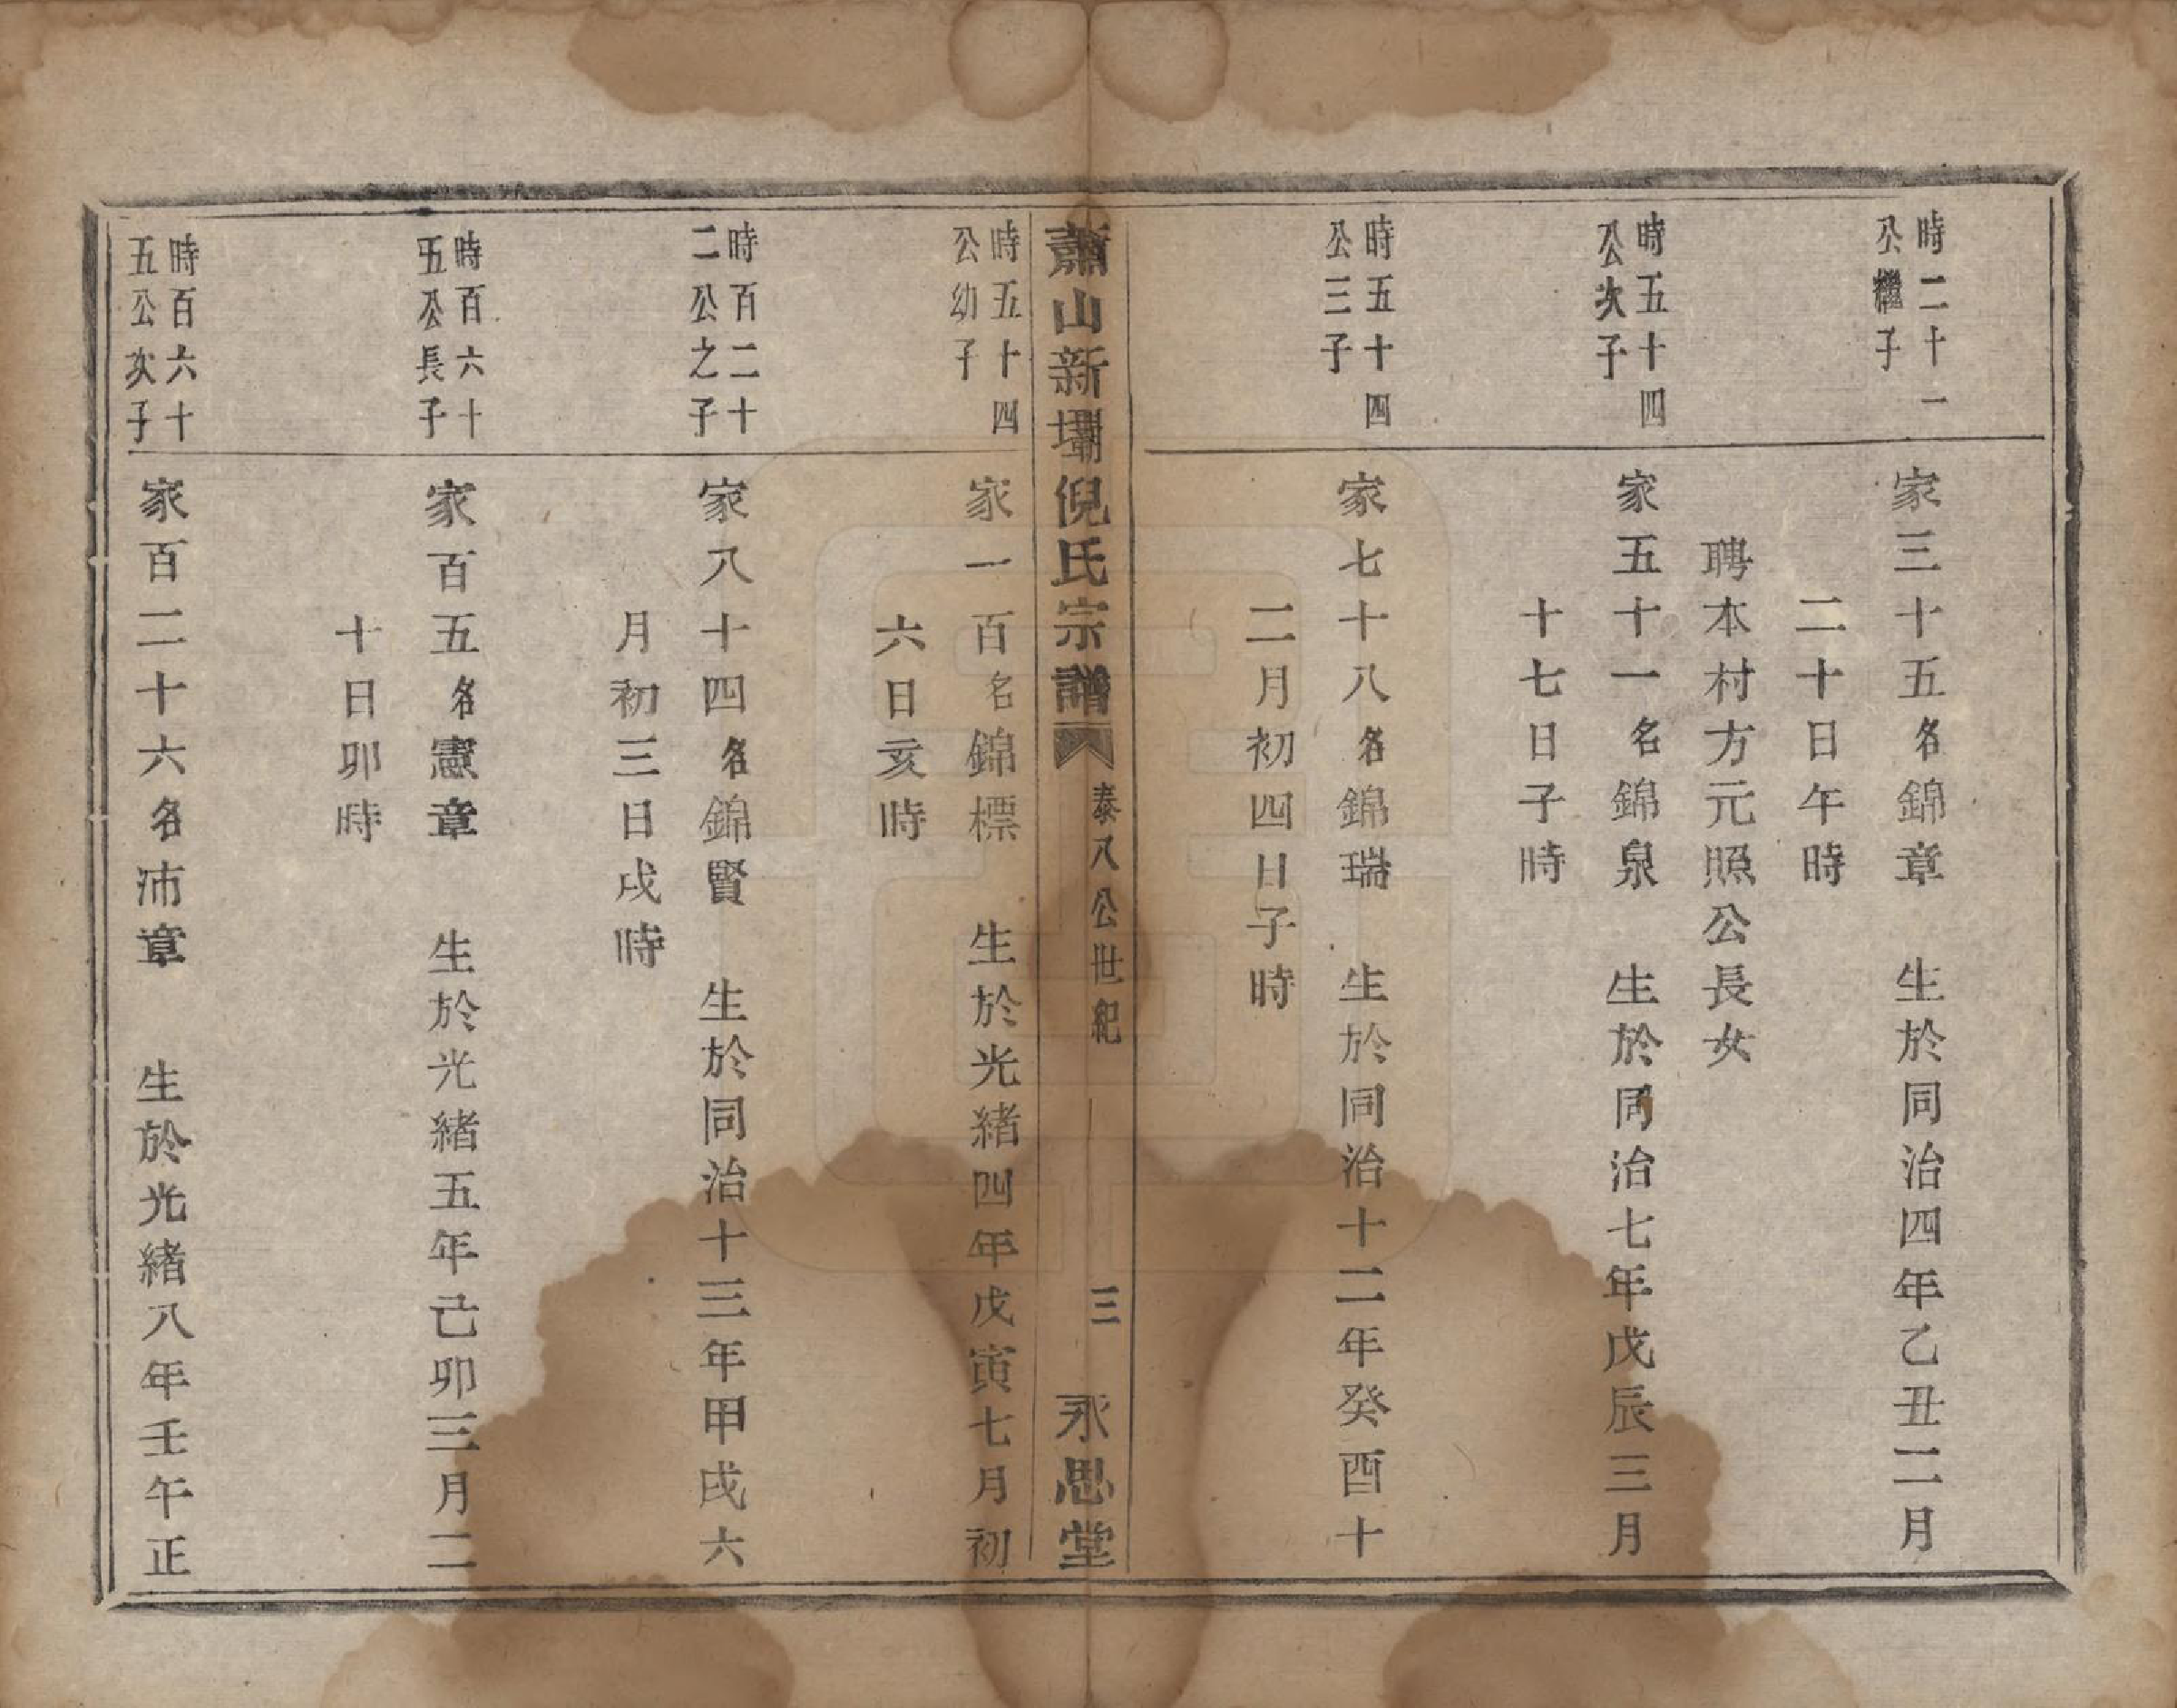 時二十一
公繼子
家三十五名錦章　生於同治四年乙丑二月
二十日午時
聘本村方元照公長女
時五十四
公次子
家五十一名錦泉　生於同治七年戊辰三月
十七日子時
時五十四
公三子
家七十八名錦瑞　生於同治十二年癸酉十
二月初四日子時
蕭山新壩倪氏宗譜　泰八公世紀　三　永思堂
時五十四
公幼子
家一百名錦標　生於光緒四年戊寅七月初
六日亥時
時百二十
二公之子
家八十四名錦賢　生於同治十三年甲戌六
月初三日戌時
時百六十
五公長子
家百五名憲章　生於光緒五年己卯三月二
十日卯時
時百六十
五公次子
家百二十六名沛章　生於光緒八年壬午正